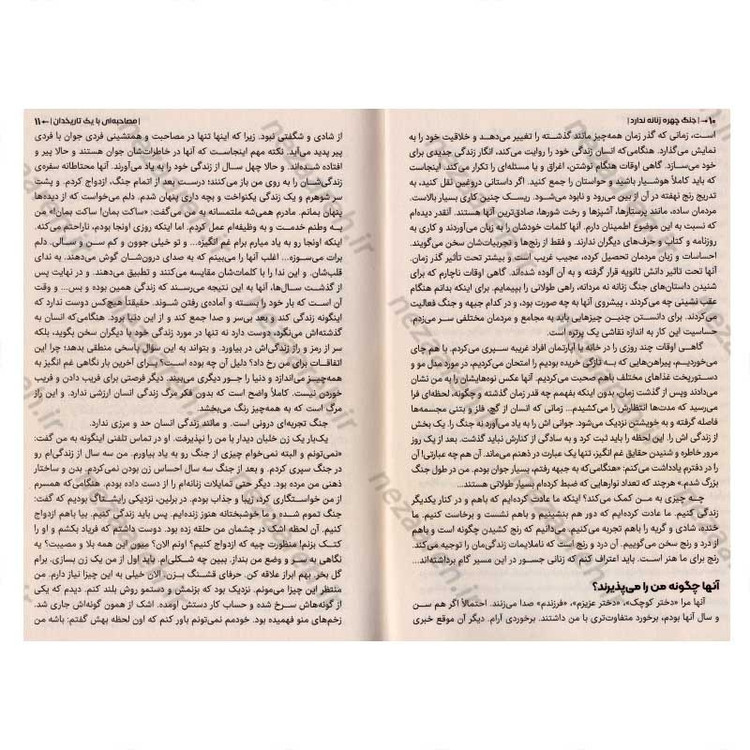 ۱۰ ← | جنگ چهره زنانه ندارد |
است، زمانی که گذر زمان همه‌چیز مانند گذشته را تغییر می‌دهد و خلاقیت خود را به
نمایش می‌گذارد. هنگامی‌که انسان زندگی خود را روایت می‌کند، انگار زندگی جدیدی برای
خود می‌سازد. گاهی اوقات هنگام نوشتن، اغراق و یا مسئله‌ای را تکرار می‌کند. اینجاست
که باید کاملاً هوشیار باشید و حواستان را جمع کنید. اگر داستانی دروغین نقل کنید، به
تدریج رنج نهفته در آن از بین می‌رود و نابود می‌شود. ریسک چنین کاری بسیار بالاست.
مردمان ساده، مانند پرستارها، آشپزها و رخت شورها، صادق‌ترین آنها هستند. آنقدر دیده‌ام
که نسبت به این موضوع اطمینان دارم. آنها کلمات خودشان را به زبان می‌آورند و کاری به
روزنامه و کتاب و حرف‌های دیگران ندارند. و فقط از رنج‌ها و تجربیات‌شان سخن می‌گویند.
احساسات و زبان مردمان تحصیل کرده، عجیب غریب است و بیشتر تحت تأثیر گذر زمان.
آنها تحت تاثیر دانش ثانویه قرار گرفته و به آن آلوده شده‌اند. گاهی اوقات ناچارم که برای
شنیدن داستان‌های جنگ زنانه نه مردانه، راهی طولانی را بپیمایم. برای اینکه بدانم هنگام
عقب نشینی چه می‌کردند، پیشروی آنها به چه صورت بود، و در کدام جبهه و جنگ فعالیت
می‌کردند. برای دانستن چنین چیزهایی باید به مجامع و مردمان مختلفی سر می‌زدم.
حساسیت این کار به اندازه نقاشی یک پرتره است.
گاهی اوقات چند روزی را در خانه یا آپارتمان افراد غریبه سپری می‌کردم. با هم چای
می‌خوردیم، پیراهن‌هایی که به تازگی خریده بودیم را امتحان می‌کردیم، در مورد مدل مو و
دستورپخت غذاهای مختلف باهم صحبت می‌کردیم. آنها عکس نوه‌هایشان را به من نشان
می‌دادند وپس از گذشت زمان، بدون اینکه بفهمم چه قدر زمان گذشته و چگونه، لحظه‌ای فرا
می‌رسید که مدت‌ها انتظارش را می‌کشیدم... زمانی که انسان از گچ، فلز و بتنی مجسمه‌ها
فاصله گرفته و به خویشتن نزدیک می‌شود. جوانی اش را به یاد می‌آورد نه جنگ را. یک بخش
از زندگی اش را. این لحظه را باید ثبت کرد و به سادگی از کنارش نباید گذشت. بعد از یک روز
مرور خاطره و شنیدن حقایق غم انگیز، تنها یک عبارت در ذهنم می‌ماند. آن هم چه عبارتی! آن
را در دفترم یادداشت می‌کنم: «هنگامی‌که به جبهه رفتم، بسیار جوان بودم. من در طول جنگ
بزرگ شدم.» هرچند که تعداد نوارهایی که ضبط کرده‌ام بسیار طولانی هستند...
چه چیزی به من کمک می‌کند؟ اینکه ما عادت کرده‌ایم که باهم و در کنار یکدیگر
زندگی کنیم. ما عادت کرده‌ایم که دور هم بنشینیم و باهم نشست و برخاست کنیم. ما
خنده، شادی و گریه را باهم تجربه می‌کنیم. می‌دانیم که رنج کشیدن چگونه است و باهم
از درد و رنج سخن می‌گوییم. آن درد و رنج است که ناملایمات زندگی‌مان را توجیه می‌کند.
رنج برای ما هنر است. باید اعتراف کنم که زنانی جسور در این مسیر گام برداشته‌اند...
آنها چگونه من را می‌پذیرند؟
آنها مرا «دختر کوچک»، «دختر عزیزم»، «فرزندم» صدا می‌زنند. احتمالاً اگر هم سن
و سال آنها بودم، برخورد متفاوت‌تری با من داشتند. برخوردی آرام. دیگر آن موقع خبری
| مصاحبه‌ای با یک تاریخدان | → ۱۱
از شادی و شگفتی نبود. زیرا که اینها تنها در مصاحبت و همنشینی فردی جوان با فردی
پیر پدید می‌آید. نکته مهم اینجاست که آنها در خاطرات‌شان جوان هستند و حالا پیر و
افتاده شده‌اند. و حالا چهل سال از زندگی خود را به یاد می‌آورند. آنها محتاطانه سفره‌ی
زندگی‌شان را به روی من باز می‌کنند: درست بعد از اتمام جنگ، ازدواج کردم. و پشت
سر شوهرم و یک زندگی یکنواخت و بچه داری پنهان شدم. دلم می‌خواست که از دیده‌ها
پنهان بمانم. مادرم همی‌شه ملتمسانه به من می‌گفت: «ساکت بمان! ساکت بمان!» من
به وطنم خدمت و به وظیفه‌ام عمل کردم. اما اینکه روزی اونجا بودم، ناراحتم می‌کنه.
اینکه اونجا رو به یاد میارم برام غم انگیزه... و تو خیلی جوون و کم سن و سالی. دلم
برات می‌سوزه... اغلب آنها را می‌بینم که به صدای درون‌شان گوش می‌دهند. به ندای
قلب‌شان. و این ندا را با کلمات‌شان مقایسه می‌کنند و تطبیق می‌دهند. و در نهایت پس
از گذشت سال‌ها، آنها به این نتیجه می‌رسند که زندگی همین بوده و بس... و وقت
آن است که بار خود را بسته و آماده‌ی رفتن شوند. حقیقتاً هیچ‌کس دوست ندارد که
اینگونه زندگی کند و بعد بی‌سر و صدا جمع کند و از این دنیا برود. هنگامی‌که انسان به
گذشته‌اش می‌نگرد، دوست دارد نه تنها در مورد زندگی خود با دیگران سخن بگوید، بلکه
سر از رمز و راز زندگی‌اش در بیاورد. و بتواند به این سؤال پاسخی منطقی بدهد: چرا این
اتفاقات برای من رخ داد؟ دلیل آن چه بوده است؟ برای آخرین بار نگاهی غم انگیز به
همه‌چیز می‌اندازد و دنیا را جور دیگری می‌بیند. دیگر فرصتی برای فریب دادن و فریب
خوردن نیست. کاملاً واضح است که بدون فکر مرگ زندگی انسان ارزشی ندارد. و راز
مرگ است که به همه‌چیز رنگ می‌بخشد.
جنگ تجربه‌ای درونی است. و مانند زندگی انسان حد و مرزی ندارد.
یک‌بار یک زن خلبان دیدار با من را نپذیرفت. او در تماس تلفنی اینگونه به من گفت:
«نمی‌تونم و البته نمی‌خوام چیزی از جنگ رو به یاد بیاورم. من سه سال از زندگی‌ام رو
در جنگ سپری کردم. و بعد از جنگ سه سال احساس زن بودن نمی‌کردم. بدن و ساختار
ذهنی من مرده بود. دیگر حتی تمایلات زنانه‌ام را از دست داده بودم. هنگامی‌که همسرم
از من خواستگاری کرد، زیبا و جذاب بودم. در برلین، نزدیکی رایشتاگ بودیم که گفت:
جنگ تموم شده و ما خوشبختانه هنوز زنده‌ایم. پس باید زندگی کنیم. بیا باهم ازدواج
کنیم. آن لحظه اشک در چشمان من حلقه زده بود. دوست داشتم که فریاد بکشم و او را
کتک بزنم! منظورت چیه که ازدواج کنیم؟ اونم الان؟ میون این همه بلا و مصیبت؟ یه
نگاهی به سر و وضع من بنداز. ببین چه شکلی‌ام. باید اول از من یک زن بسازی. برام
گل بخر. بهم ابراز علاقه کن. حرفای قشنگ بزن. الان خیلی به این چیزا نیاز دارم. من
منتظر این چیزا می‌مونم. نزدیک بود که بزنمش و دستمو روش بلند کنم. دیدم که یکی
از گونه‌هاش سرخ شده و حساب کار دستش اومده. اشک از همون گونه‌اش جاری شد.
زخم‌های منو فهمیده بود. خودمم نمی‌تونم باور کنم که اون لحظه بهش گفتم: باشه من
nezameh.ir